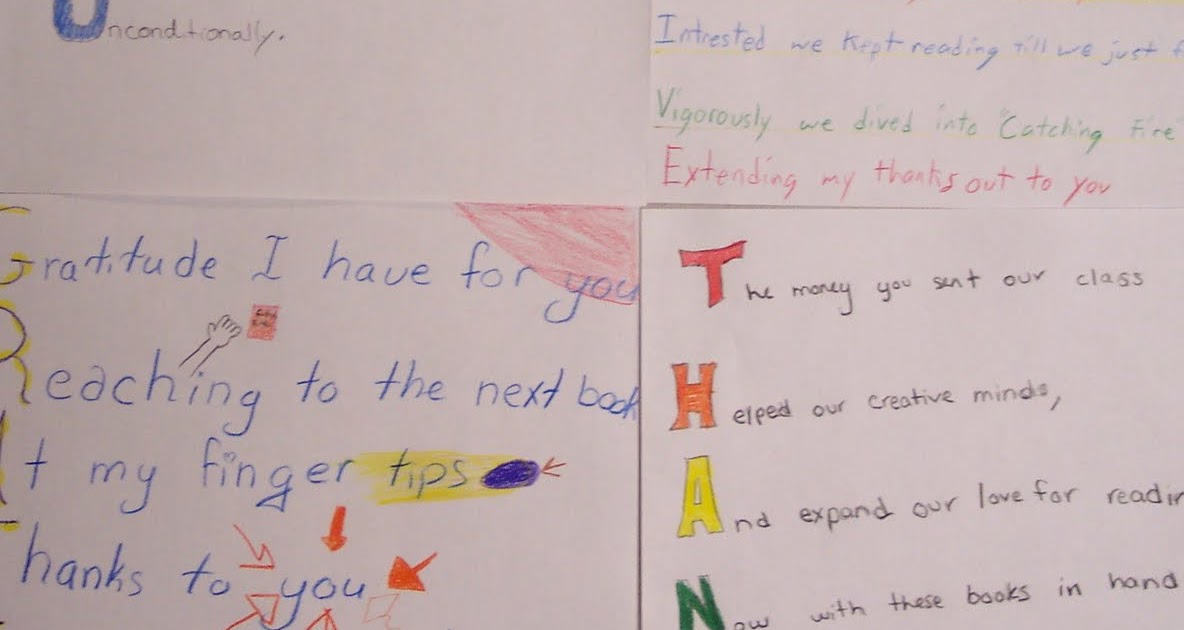 Unconditionally.
Intrested we kept reading till we just
Vigorously we dived into "Catching Fire"
Extending my thanks out to you
Gratitude I have for you
Reaching to the next book
At my finger tips
Thanks to you
The money you sent our class
Helped our creative minds,
And expand our love for readin
Now with these books in hand